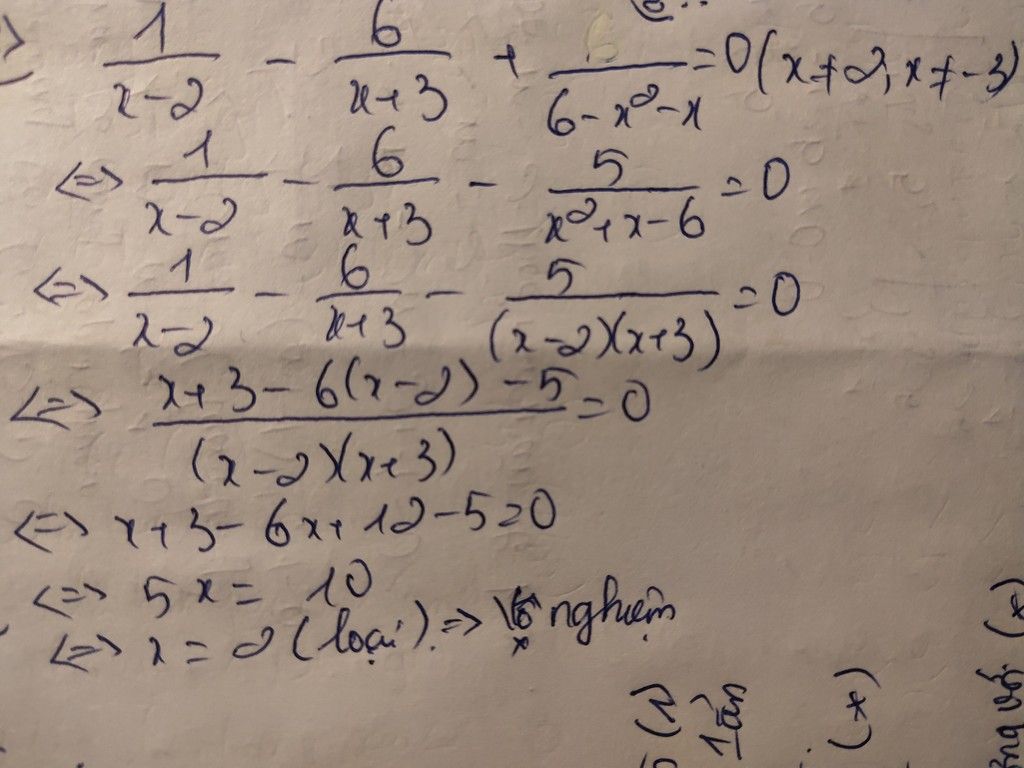 1/(x-2) - 6/(x+3) + /(6-x²-x) = 0 (x ≠ 2, x ≠ -3)
<=> 1/(x-2) - 6/(x+3) - 5/(x²+x-6) = 0
<=> 1/(x-2) - 6/(x+3) - 5/((x-2)(x+3)) = 0
<=> (x+3-6(x-2)-5)/((x-2)(x+3)) = 0
<=> x+3-6x+12-5=0
<=> 5x = 10
<=> x = 2 (loại) => Vô nghiệm
(*)
(*)